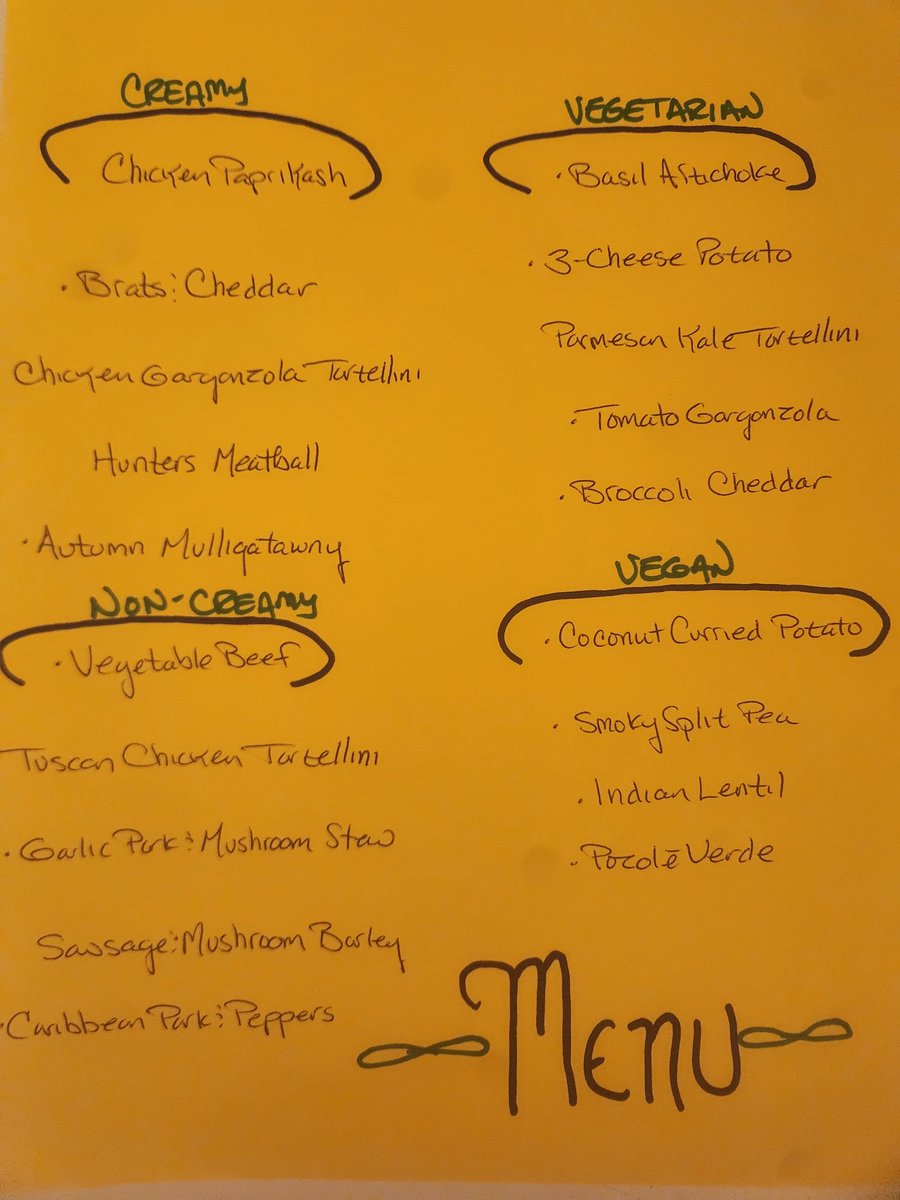 CREAMY
Chicken Paprikash
· Brats & Cheddar
Chicken Gorgonzola Tortellini
Hunters Meatball
· Autumn Mulligatawny
NON-CREAMY
· Vegetable Beef
Tuscan Chicken Tortellini
· Garlic Pork & Mushroom Stew
Sausage & Mushroom Barley
· Caribbean Pork & Peppers
VEGETARIAN
· Basil Artichoke
· 3-Cheese Potato
Parmesan Kale Tortellini
· Tomato Gorgonzola
· Broccoli Cheddar
VEGAN
· Coconut Curried Potato
· Smoky Split Pea
· Indian Lentil
· Pozolē Verde
MENU